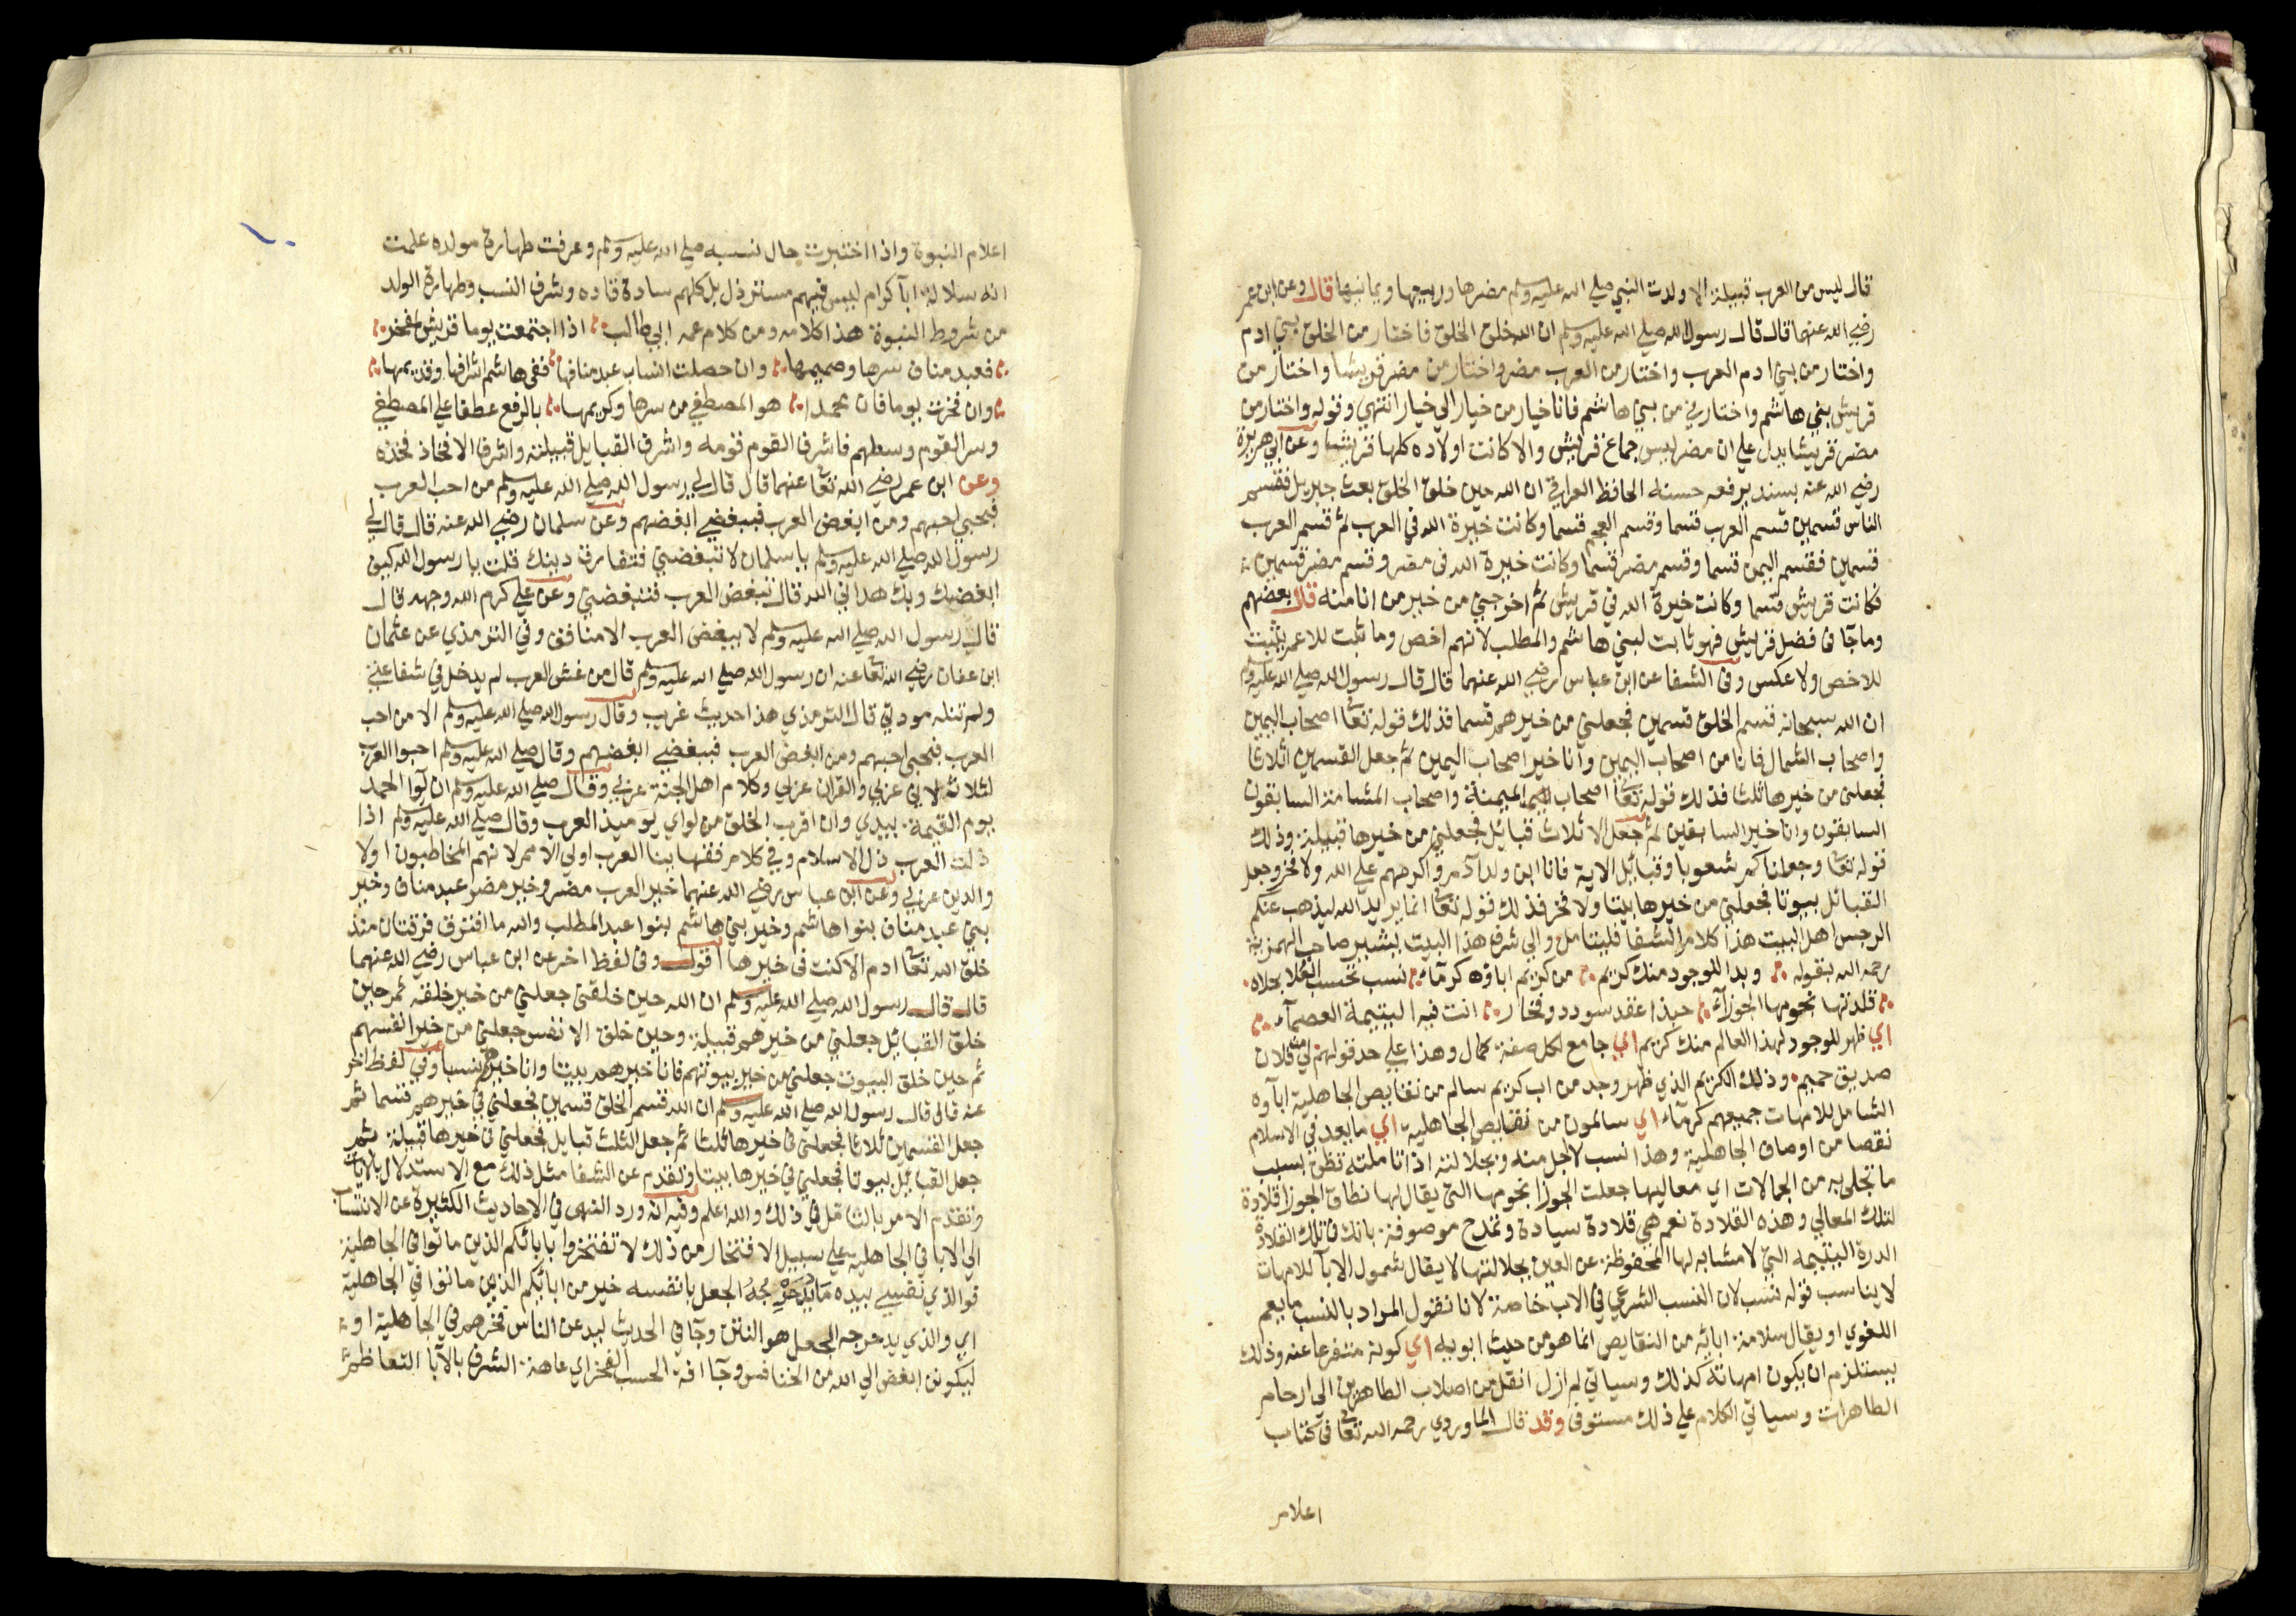 قال ليس من العرب قبيلة الا ولدت النبي صلي الله عليه وسلم مضرها وربيعها ويمانيها قال وعن ابن عمر
رضي الله عنهما قال قال رسول الله صلي الله عليه وسلم ان الله خلق الخلق فاختار من الخلق بني ادم
واختار من بني ادم العرب واختار من العرب مضر واختار من مضر قريشا واختار من
قريش بني هاشم واختارني من بني هاشم فانا خيار من خيار الي خيار انتهي وقوله واختار من
مضر قريشا يدل علي ان مضر ليس جماع قريش والا كانت اولاده كلها قريشا وعن ابي هريرة
رضي الله عنه بسند يرفعه حسنه الحافظ العراقي ان الله حين خلق الخلق بعث جبريل فقسم
الناس قسمين قسم العرب قسما وقسم العجم قسما وكانت خيرة الله في العرب ثم قسم العرب
قسمين فقسم اليمن قسما وقسم مضر قسما وكانت خيرة الله في مضر وقسم مضر قسمين
فكانت قريش قسما وكانت خيرة الله في قريش ثم اخرجني من خير من انا منه قال بعضهم
وما جا في فضل قريش فهو ثابت لبني هاشم والمطلب لانهم اخص وما ثبت للاعم يثبت
للاخص ولا عكس وفي الشفا عن ابن عباس رضي الله عنهما قال قال رسول الله صلي الله عليه وسلم
ان الله سبحانه قسم الخلق قسمين فجعلني من خيرهم قسما فذلك قوله تعا اصحاب اليمين
واصحاب الشمال فانا من اصحاب اليمين وانا خير اصحاب اليمين ثم جعل القسمين اثلاثا
فجعلني من خيرها ثلثا فذلك قوله تعا اصحاب الميمنة واصحاب المشامة السابقون
السابقون وانا خير السابقين ثم جعل الاثلاث قبائل فجعلني من خيرها قبيلة وذلك
قوله تعا وجعلناكم شعوبا وقبائل الاية فانا ابن ولد آدم واكرمهم علي الله ولا فخر وجعل
القبائل بيوتا فجعلني من خيرها بيتا ولا فخر فذلك قوله تعا انما يريد الله ليذهب عنكم
الرجس اهل البيت هذا كلام الشفا فليتامل والي شرف هذا البيت يشير صاحب الهمزية
رحمه الله بقوله وبدا للوجود منك كريم من كريم اباؤه كرماء نسب تحسب العلا بحلاه
قلدتها نجومها الجوزآء حبذا عقد سودد وفخار انت فيه اليتيمة العصمآء
اي ظهر للوجود لهذا العالم منك كريم اي جامع لكل صفة كمال وهذا علي حد قولهم لي من فلان
صديق حميم وذلك الكريم الذي ظهر وجد من اب كريم سالم من نقايص الجاهلية اباوه
الشامل للامهات جميعهم كرماء اي سالمون من نقايص الجاهلية اي ما يعد في الاسلام
نقصا من اوصاف الجاهلية وهذا نسب لاجل منه وبجلالته اذا تاملته تظن بسبب
ما تحلي به من الجمالات اي معاليها جعلت الجوزا نجومها التي يقال لها نطاق الجوزا قلادة
لتلك المعالي وهذه القلادة نعم هي قلادة سيادة وتمدح موصوفة بانك في تلك القلادة
الدرة اليتيمه التي لا مشابه لها المحفوظة عن العين بجلالتها لا يقال شمول الابآ للامهات
لا يناسب قوله نسب لان النسب الشرعي في الاب خاصة لانا نقول المراد بالنسب ما يعم
اللغوي او يقال سلامة ابائه من النقايص انما هو من حيث ابويه اي كونه متفرعا عنه وذلك
يستلزم ان يكون امهاته كذلك وسياتي لم ازل انقل من اصلاب الطاهرين الي ارحام
الطاهرات وسياتي الكلام علي ذلك مستوفي وقد قال الماوردي رحمه الله تعا في كتاب
اعلام
اعلام النبوة واذا اختبرت حال نسبه صلي الله عليه وسلم وعرفت طهارة مولده علمت
انه سلالة ابآ كرام ليس فيهم مسترذل بل كلهم سادة قاده وشرف النسب وطهارة المولد
من شروط النبوة هذا كلامه ومن كلام عمه ابي طالب اذا اجتمعت يوما قريش لمفخر
فعبد مناف سرها وصميمها وان حصلت انساب عبد منافها ففي هاشم اشرافها وقديمها
وان فخرت يوما فان محمدا هو المصطفي من سرها وكريمها بالرفع عطفا علي المصطفي
وسر القوم وسطهم فاشرف القوم قومه واشرف القبايل قبيلته واشرف الافخاذ فخذه
وعن ابن عمر رضي الله تعا عنهما قال قال لي رسول الله صلي الله عليه وسلم من احب العرب
فبحبي احبهم ومن ابغض العرب فببغضي ابغضهم وعن سلمان رضي الله عنه قال قال لي
رسول الله صلي الله عليه وسلم يا سلمان لا تبغضني فتفارق دينك قلت يا رسول الله كيف
ابغضك وبك هداني الله قال تبغض العرب فتبغضني وعن علي كرم الله وجهه قال
قال رسول الله صلي الله عليه وسلم لا يبغض العرب الا منافق وفي الترمذي عن عثمان
ابن عفان رضي الله تعا عنه ان رسول الله صلي الله عليه وسلم قال من غش العرب لم يدخل في شفاعتي
ولم تنله مودتي قال الترمذي هذا حديث غريب وقال رسول الله صلي الله عليه وسلم الا من احب
العرب فبحبي احبهم ومن ابغض العرب فببغضي ابغضهم وقال صلي الله عليه وسلم احبوا العرب
لثلاث لاني عربي والقران عربي وكلام اهل الجنة عربي وقال صلي الله عليه وسلم ان لوا الحمد
يوم القيمة بيدي وان اقرب الخلق من لواي يوميذ العرب وقال صلي الله عليه وسلم اذا
ذلت العرب ذل الاسلام وفي كلام فقهاينا العرب اولي الامم لانهم المخاطبون اولا
والدين عربي وعن ابن عباس رضي الله عنهما خير العرب مضر وخير مضر عبد مناف وخير
بني عبد مناف بنوا هاشم وخير بني هاشم بنوا عبد المطلب والله ما افترق فرقتان منذ
خلق الله تعا ادم الا كنت في خيرها اقول وفي لفظ اخر عن ابن عباس رضي الله عنهما
قال قال رسول الله صلي الله عليه وسلم ان الله حين خلقني جعلني من خير خلقه ثم حين
خلق القبائل جعلني من خيرهم قبيلة وحين خلق الانفس جعلني من خير انفسهم
ثم حين خلق البيوت جعلني من خير بيوتهم فانا خيرهم بيتا وانا خيرهم نسبا وفي لفظ اخر
عنه قال قال رسول الله صلي الله عليه وسلم ان الله قسم الخلق قسمين فجعلني في خيرهم قسما ثم
جعل القسمين ثلاثا فجعلني في خيرها ثلثا ثم جعل الثلث قبايل فجعلني في خيرها قبيلة ثم
جعل القبائل بيوتا فجعلني في خيرها بيتا وتقدم عن الشفا مثل ذلك مع الاستدلال بالايات
وتقدم الامر بالتامل في ذلك والله اعلم وفيه انه ورد النهي في الاحاديث الكثيرة عن الانتساب
الي الابا في الجاهلية علي سبيل الافتخار من ذلك لا تفتخروا بابائكم الذين ماتوا في الجاهلية
فوالذي نفسي بيده ما يدحرج الجعل بانفسه خير من ابائكم الذين ماتوا في الجاهلية
اي والذي يدحرجه الجعل هو النتن وجآ في الحديث ليدعن الناس فخرهم في الجاهلية او
ليكونن ابغض الي الله من الخنافس وجآ افة الحسب الفخر اي عاهة الشرف بالآبا التعاظم